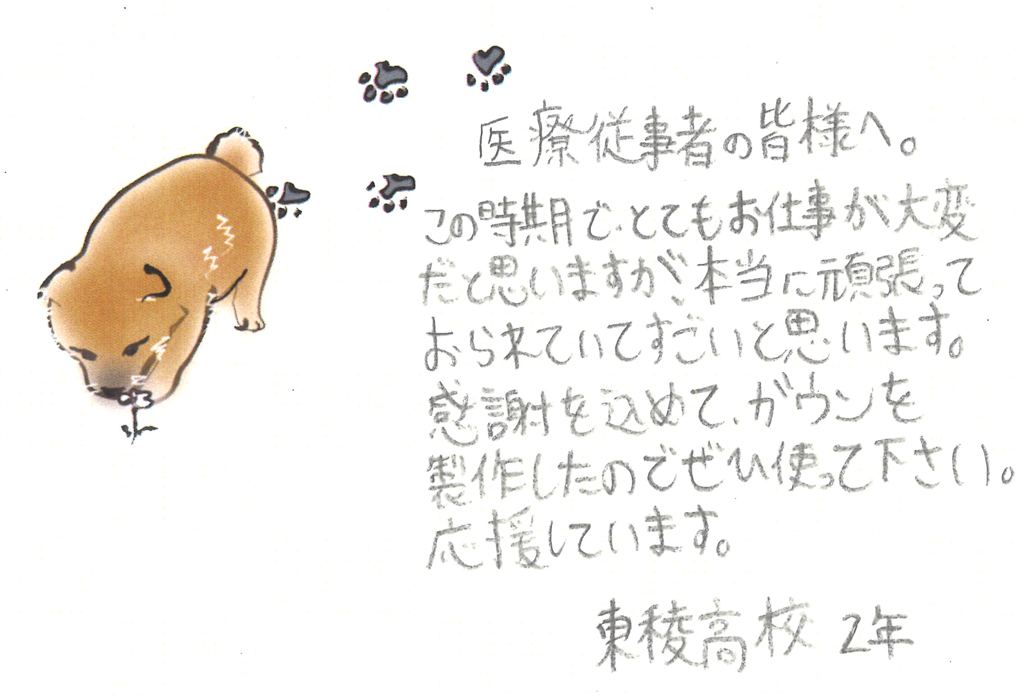 医療従事者の皆様へ。
この時期で、とてもお仕事が大変
だと思いますが、本当に頑張って
おられていてすごいと思います。
感謝を込めて、ガウンを
製作したのでぜひ使って下さい。
応援しています。
東稜高校 2年